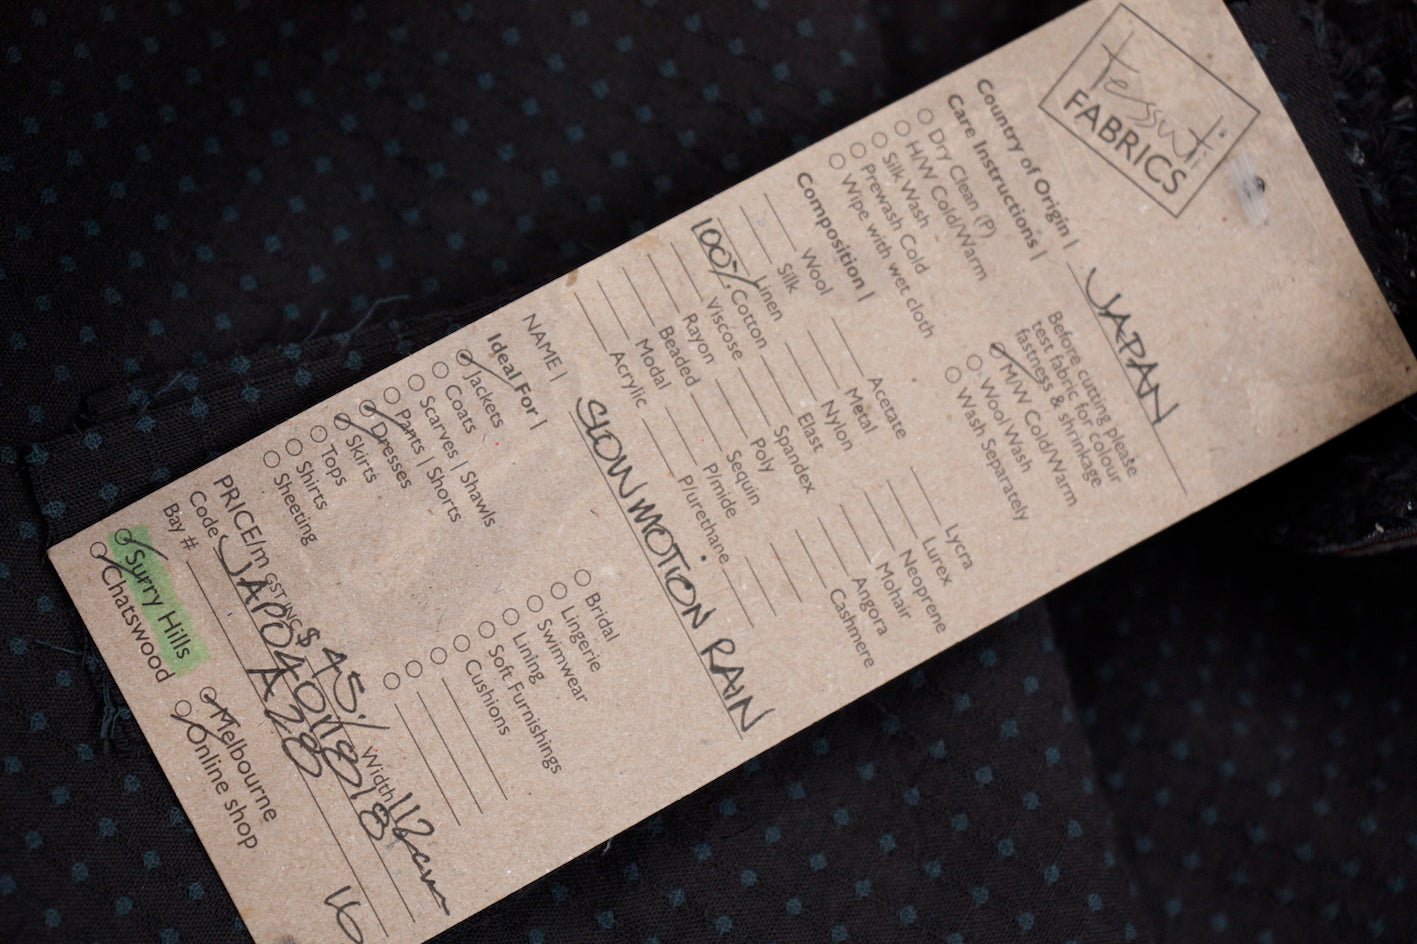 tessuti
FABRICS
Country of Origin | JAPAN
Care Instructions |
Before cutting please
test fabric for colour
fastness & shrinkage
Dry Clean (P)
H/W Cold/Warm
Silk Wash
Prewash Cold
Wipe with wet cloth
M/W Cold/Warm
Wool Wash
Wash Separately
Composition |
Wool
Silk
Linen
100% Cotton
Viscose
Rayon
Beaded
Modal
Acrylic
Acetate
Metal
Nylon
Elast
Spandex
Poly
Sequin
P/mide
P/urethane
Lycra
Lurex
Neoprene
Mohair
Angora
Cashmere
NAME | SLOW MOTION RAIN
Ideal For |
Jackets
Coats
Scarves | Shawls
Pants | Shorts
Dresses
Skirts
Tops
Shirts
Sheeting
Bridal
Lingerie
Swimwear
Lining
Soft Furnishings
Cushions
PRICE/m GST INC $ 45./ Width 112cm
Code
Bay # A28
16
Surry Hills
Chatswood
Melbourne
Online shop